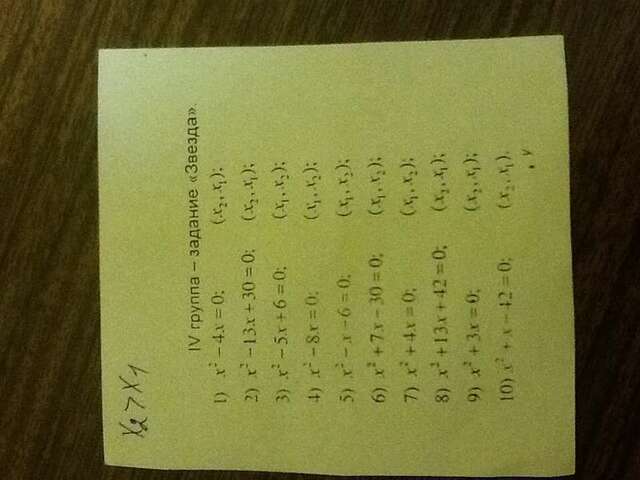 x₂ > x₁
IV группа – задание «Звезда».
1) x² – 4x = 0; (x₂, x₁);
2) x² –13x + 30 = 0; (x₂, x₁);
3) x² – 5x + 6 = 0; (x₁, x₂);
4) x² – 8x = 0; (x₁, x₂);
5) x² – x – 6 = 0; (x₁, x₂);
6) x² + 7x – 30 = 0; (x₁, x₂);
7) x² + 4x = 0; (x₁, x₂);
8) x² + 13x + 42 = 0; (x₂, x₁);
9) x² + 3x = 0; (x₂, x₁);
10) x² + x – 42 = 0; (x₂, x₁).
у